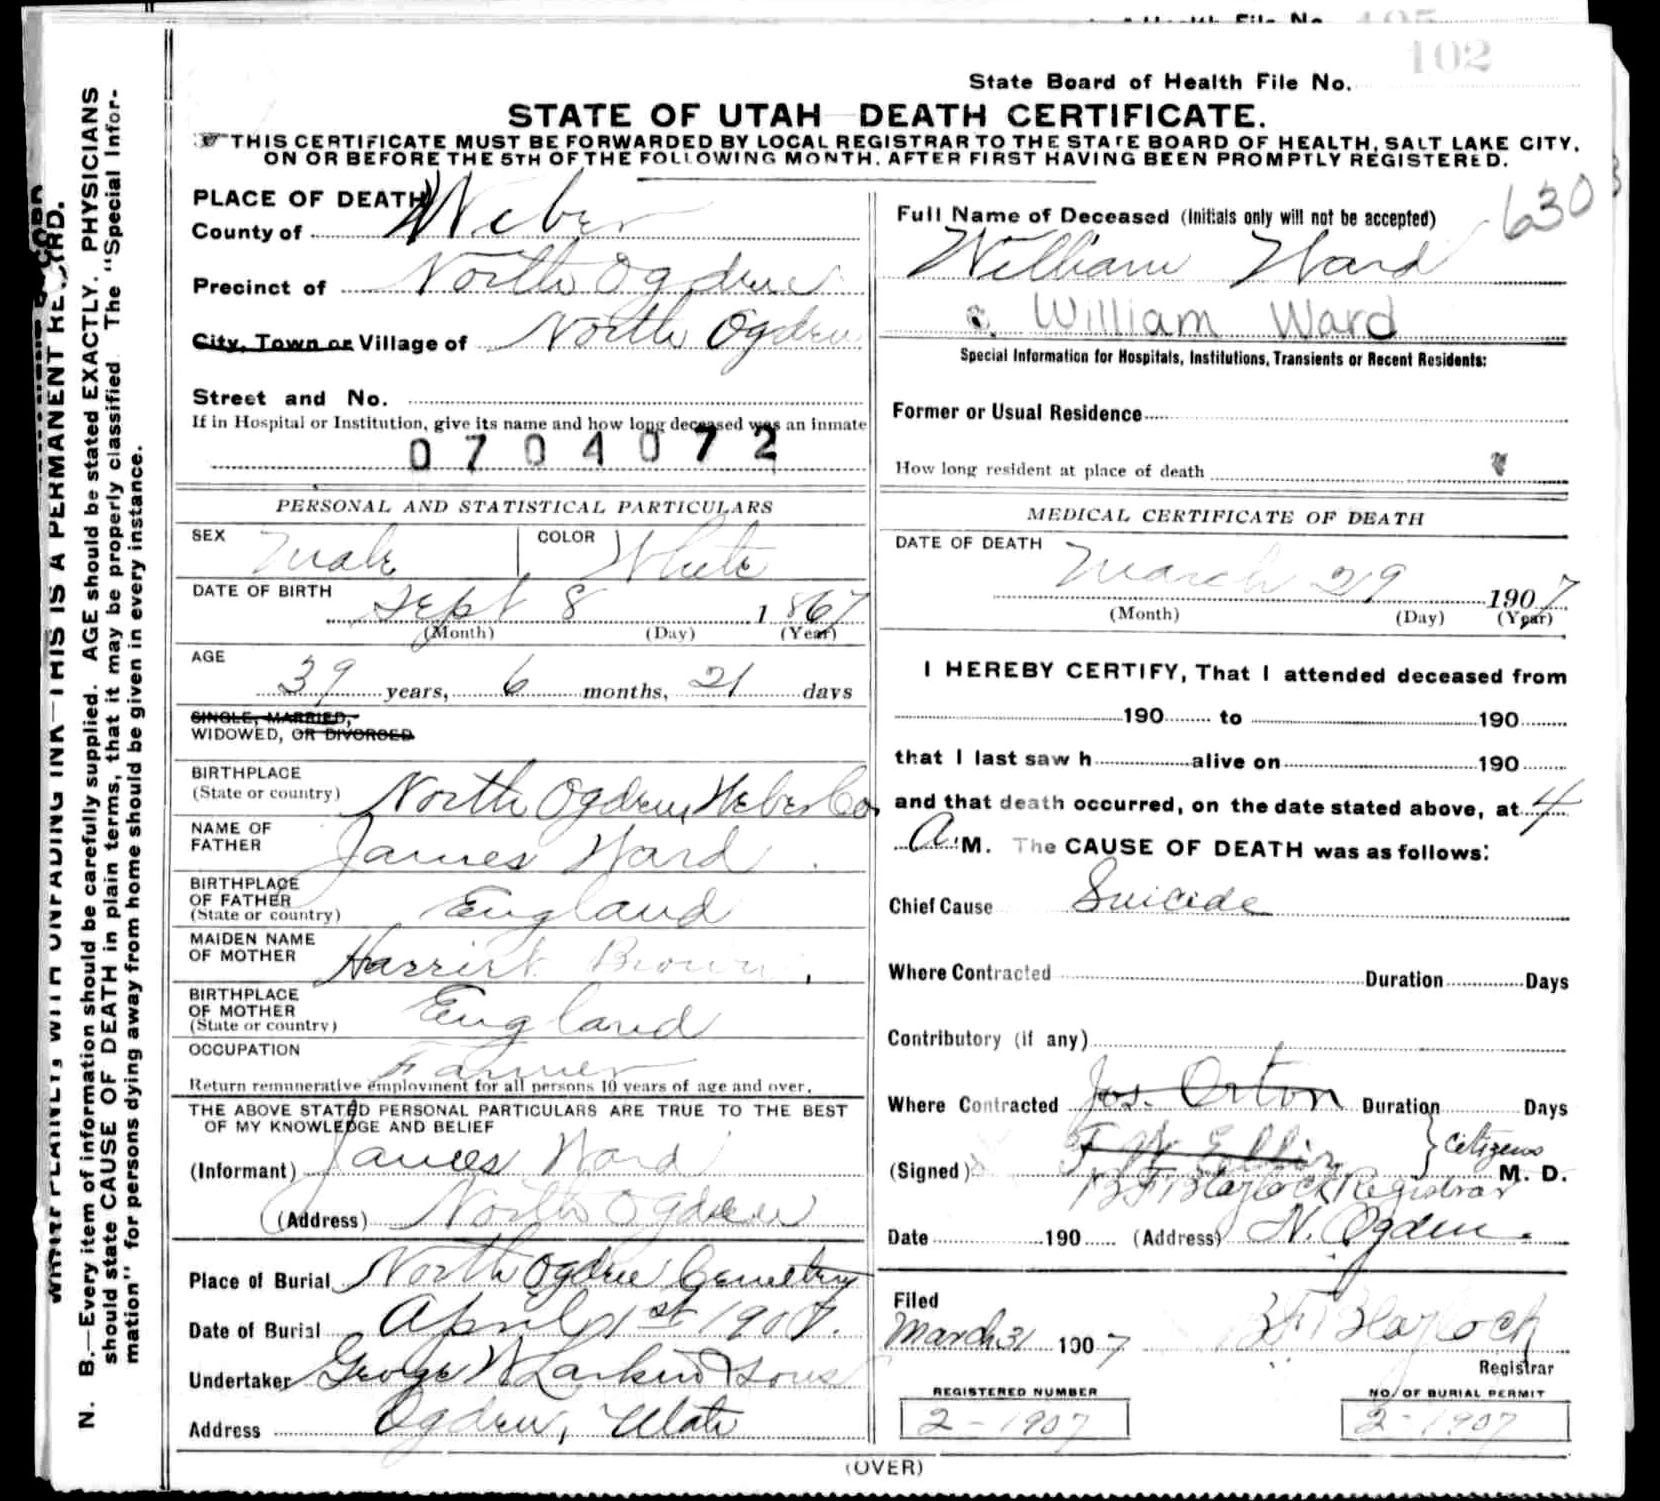 102
State Board of Health File No.
STATE OF UTAH DEATH CERTIFICATE.
THIS CERTIFICATE MUST BE FORWARDED BY LOCAL REGISTRAR TO THE STATE BOARD OF HEALTH, SALT LAKE CITY,
ON OR BEFORE THE 5TH OF THE FOLLOWING MONTH, AFTER FIRST HAVING BEEN PROMPTLY REGISTERED.
N. B.—Every item of information should be carefully supplied. AGE should be stated EXACTLY. PHYSICIANS
should state CAUSE OF DEATH in plain terms, that it may be properly classified. The "Special Infor-
mation" for persons dying away from home should be given in every instance.
WRITE PLAINLY, WITH UNFADING INK—THIS IS A PERMANENT RECORD.
PLACE OF DEATH
County of Weber
Precinct of North Ogden
City, Town or Village of North Ogden
Street and No.
If in Hospital or Institution, give its name and how long deceased was an inmate
0704072
PERSONAL AND STATISTICAL PARTICULARS
SEX Male COLOR White
DATE OF BIRTH
Sept 8 1867
(Month) (Day) (Year)
AGE
39 years, 6 months, 21 days
SINGLE, MARRIED,
WIDOWED, OR DIVORCED
BIRTHPLACE
(State or country) North Ogden, Weber Co,
NAME OF
FATHER James Ward
BIRTHPLACE
OF FATHER England
(State or country)
MAIDEN NAME
OF MOTHER Harriet Brown,
BIRTHPLACE
OF MOTHER England
(State or country)
OCCUPATION
Farmer
Return remunerative employment for all persons 10 years of age and over.
THE ABOVE STATED PERSONAL PARTICULARS ARE TRUE TO THE BEST
OF MY KNOWLEDGE AND BELIEF
(Informant) James Ward
(Address) North Ogden
Place of Burial North Ogden Cemetery
Date of Burial April 1st 1907.
Undertaker George W Larkin & Sons
Address Ogden, Utah
630
Full Name of Deceased (Initials only will not be accepted)
William Ward
William Ward
Special Information for Hospitals, Institutions, Transients or Recent Residents:
Former or Usual Residence
How long resident at place of death
MEDICAL CERTIFICATE OF DEATH
DATE OF DEATH
March 29 1907
(Month) (Day) (Year)
I HEREBY CERTIFY, That I attended deceased from
190 to 190
that I last saw h alive on 190
and that death occurred, on the date stated above, at 4
A. M. The CAUSE OF DEATH was as follows:
Chief Cause Suicide
Where Contracted Duration Days
Contributory (if any)
Where Contracted Jos. Orton Duration Days
Citizens
(Signed) M. D.
B F Blaylock Registrar
Date 190 (Address) N. Ogden.
Filed
March 31 1907 B F Blaylock
Registrar
REGISTERED NUMBER
2-1907
NO. OF BURIAL PERMIT
2-1907
(OVER)